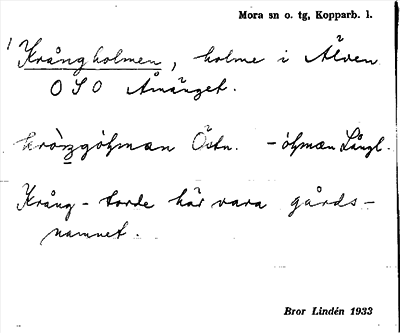 Mora sn o. tg, Kopparb. l.
1 Krångholmen, holme i Älven
OSO Åmänget.
Östn. Långl.
Krång- torde här vara gårds-
namnet.
Bror Lindén 1933